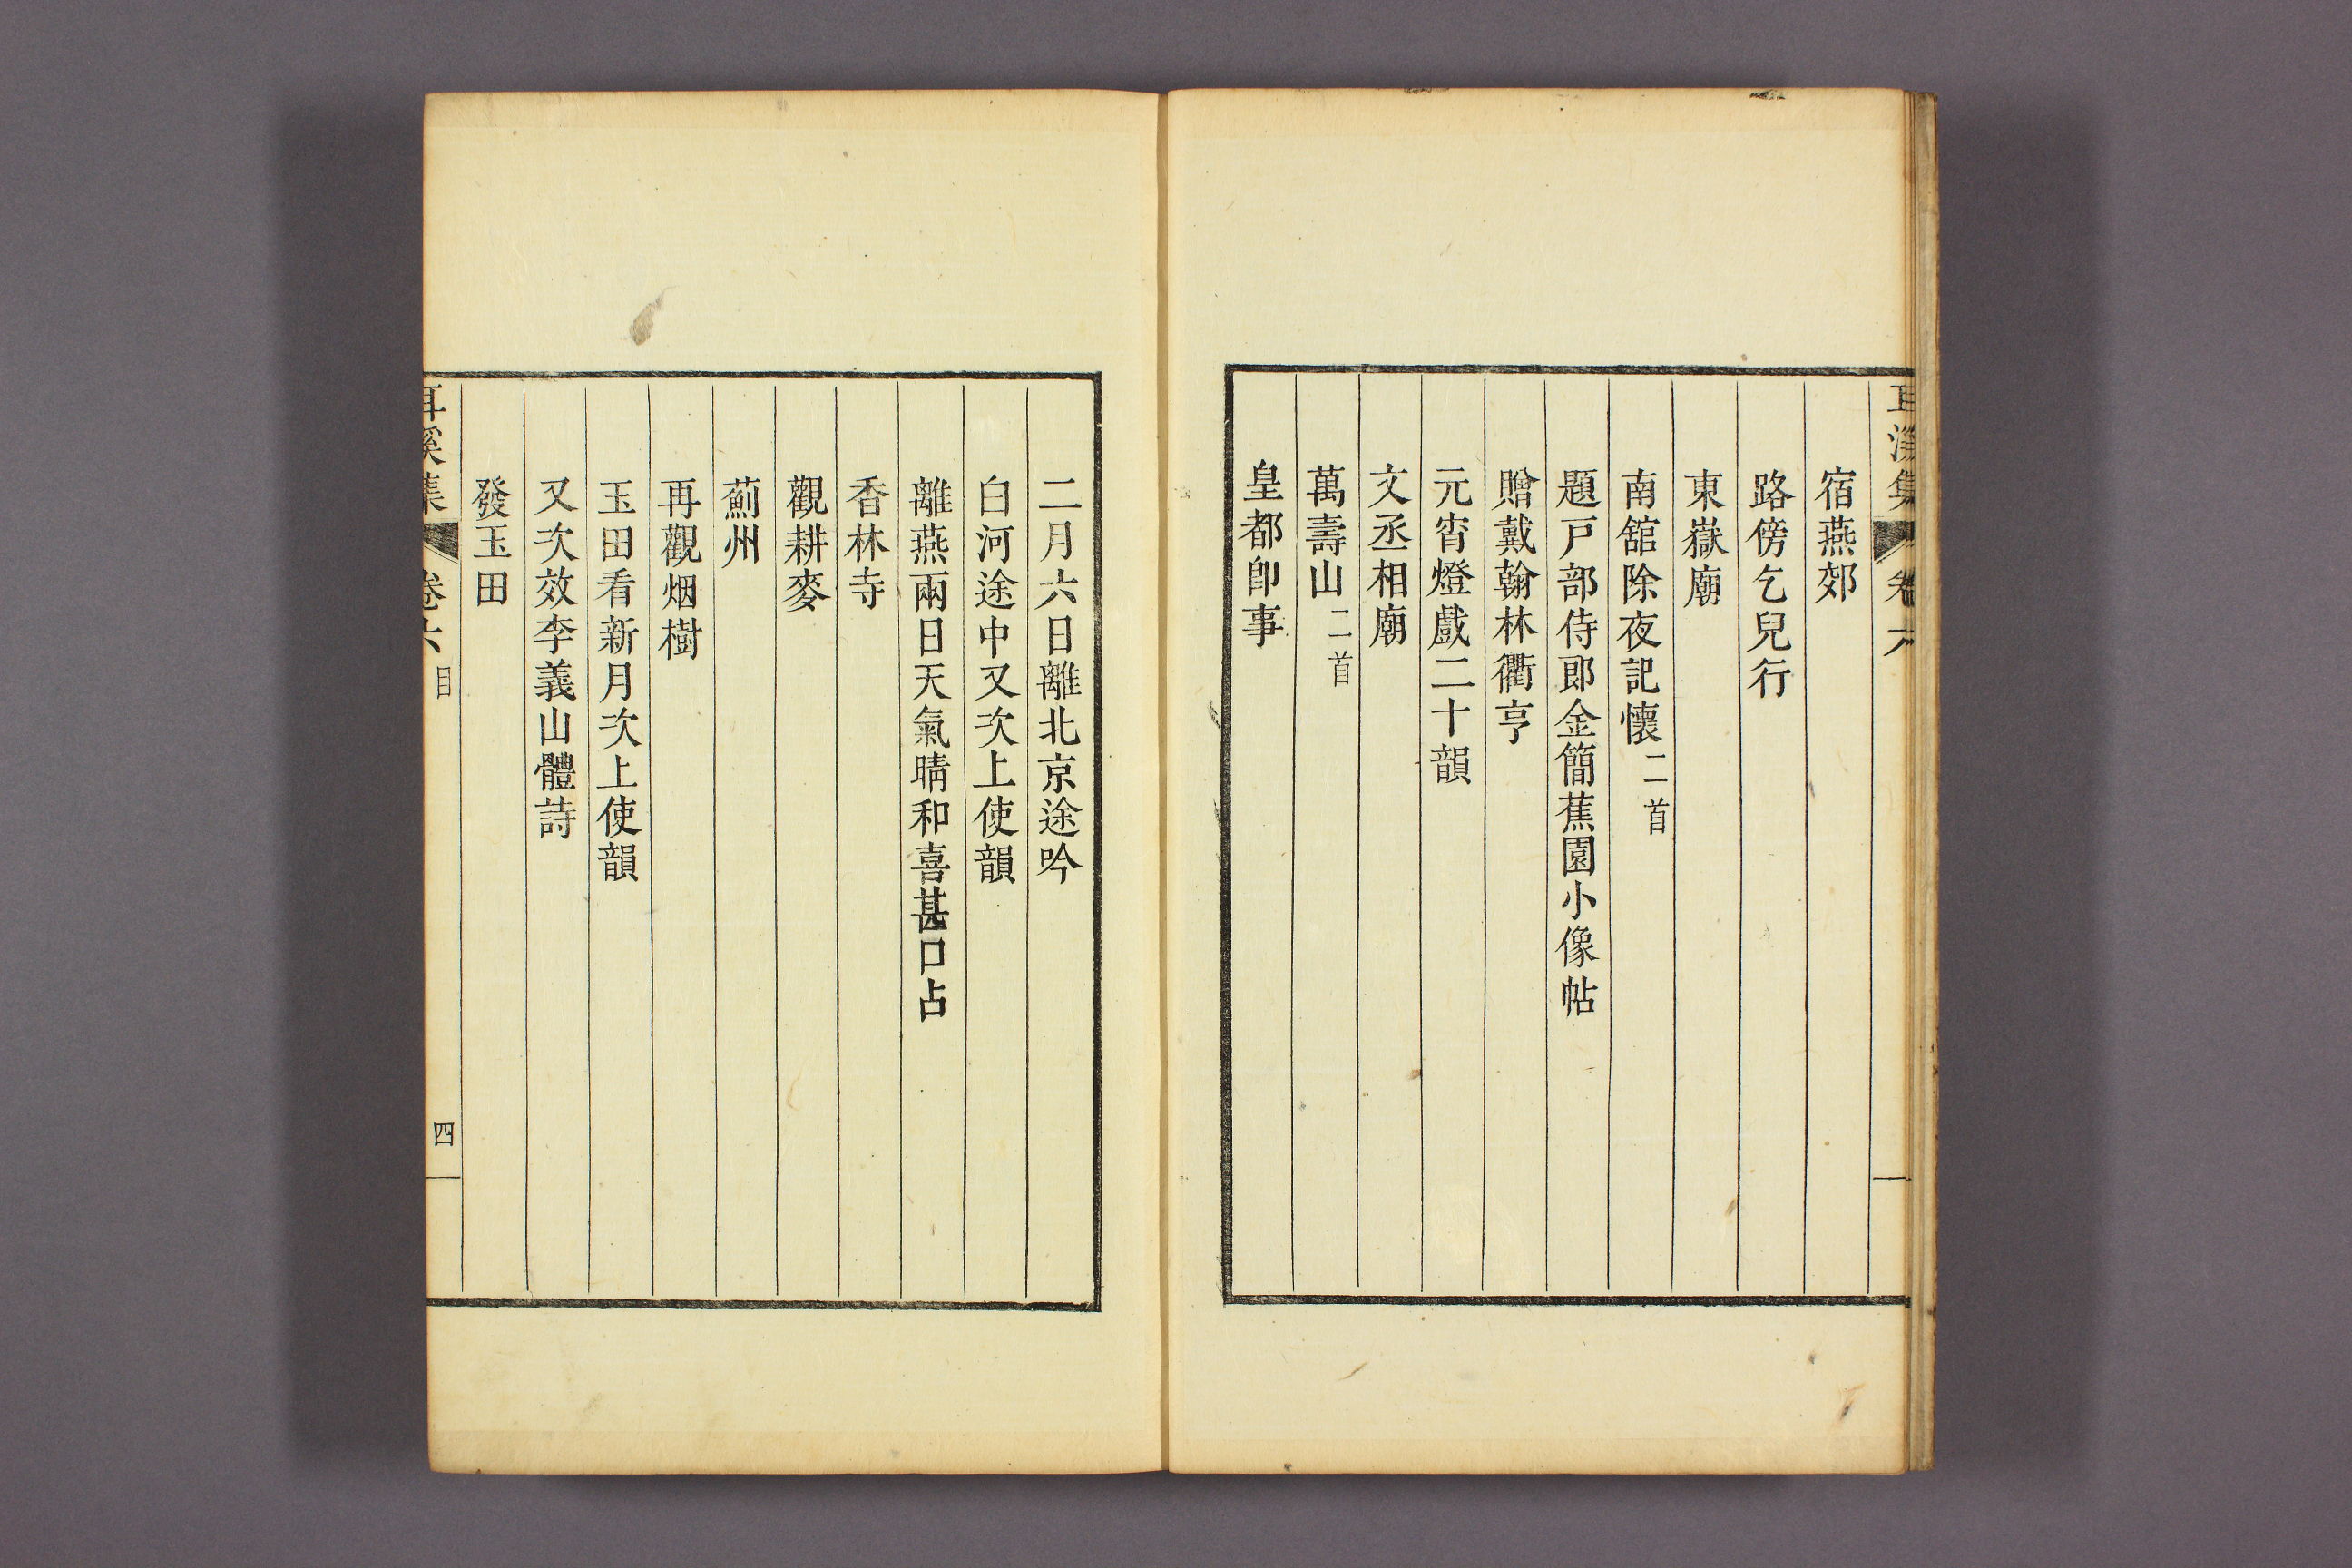 耳溪集 卷六
宿燕郊
路傍乞兒行
東嶽廟
南舘除夜記懷二首
題戶部侍郞金簡蕉園小像帖
贈戴翰林衢亨
元宵燈戲二十韻
文丞相廟
萬壽山二首
皇都卽事
二月六日離北京途吟
白河途中又次上使韻
離燕兩日天氣晴和喜甚口占
香林寺
觀耕麥
薊州
再觀烟樹
玉田看新月次上使韻
又次效李義山體詩
發玉田
耳溪集 卷六 目 四